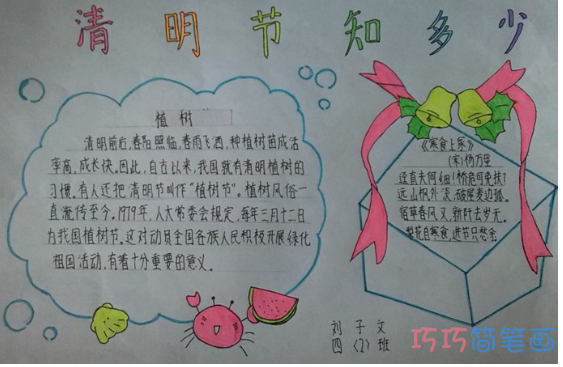 清明节知多少
植树
清明前后,春阳照临,春雨飞洒,种植树苗成活
率高,成长快。因此,自古以来,我国就有清明植树的
习惯。有人还把清明节叫作“植树节”。植树风俗一
直流传至今。1979年,人大常委会规定,每年三月十二日
为我国植树节。这对动员全国各族人民积极开展绿化
祖国活动,有着十分重要的意义。
《寒食上冢》
(宋)杨万里
迳直夫何细!桥危可免扶?
远山枫外淡,破屋麦边孤。
宿草春风又,新阡去岁无。
梨花自寒食,进节只愁余
刘子文
四(2)班
巧巧简笔画